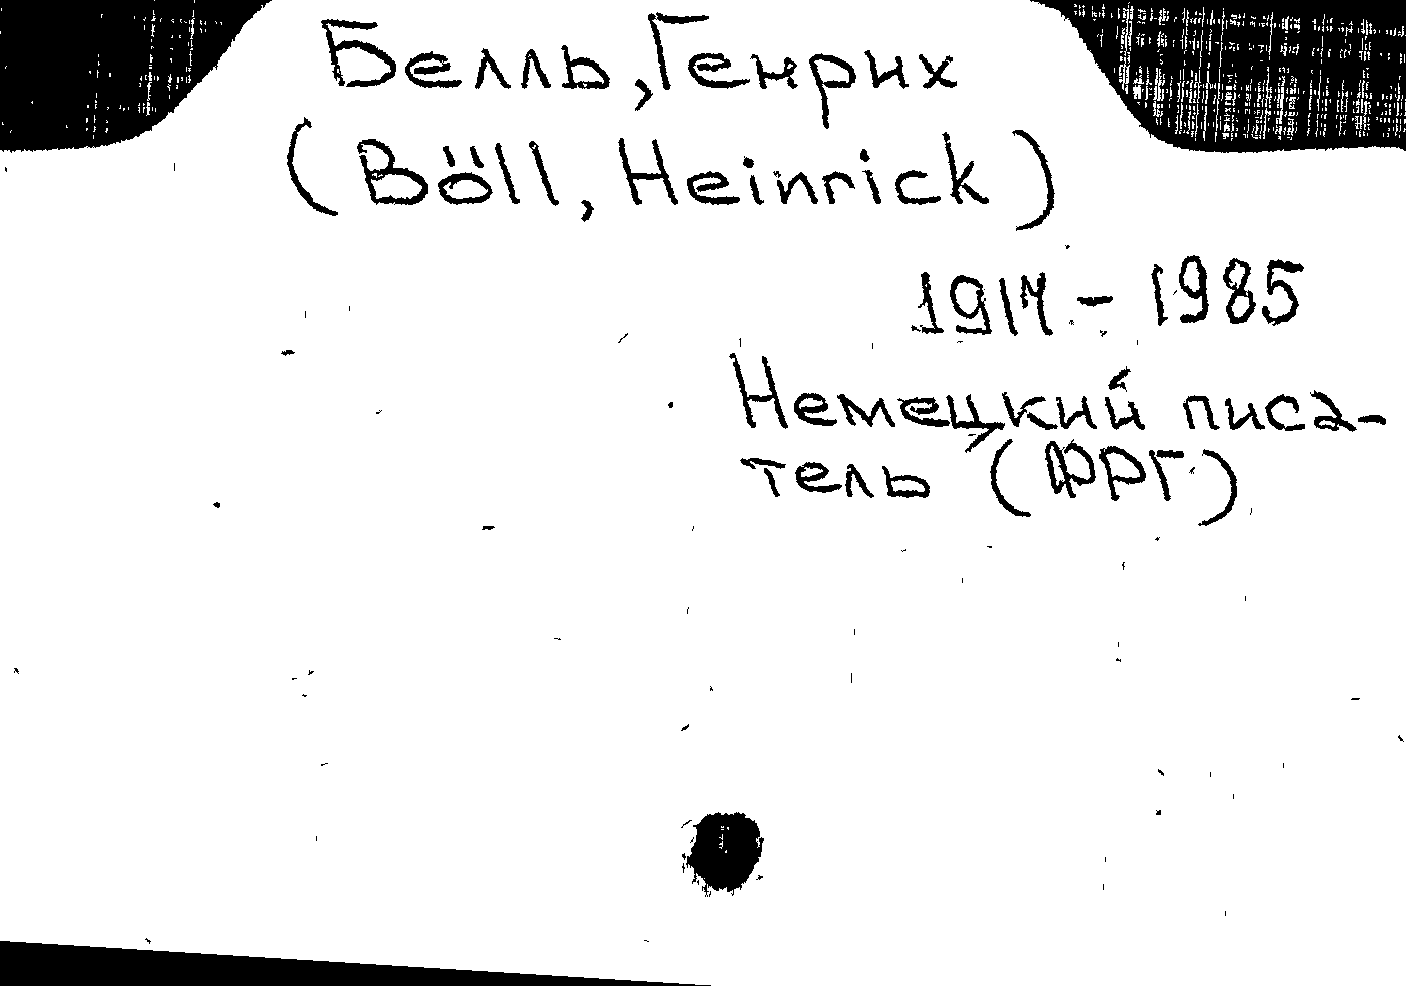 Белль, Генрих
(Böll, Heinrick)
1917 - 1985
Немецкий писа-
тель (ФРГ)